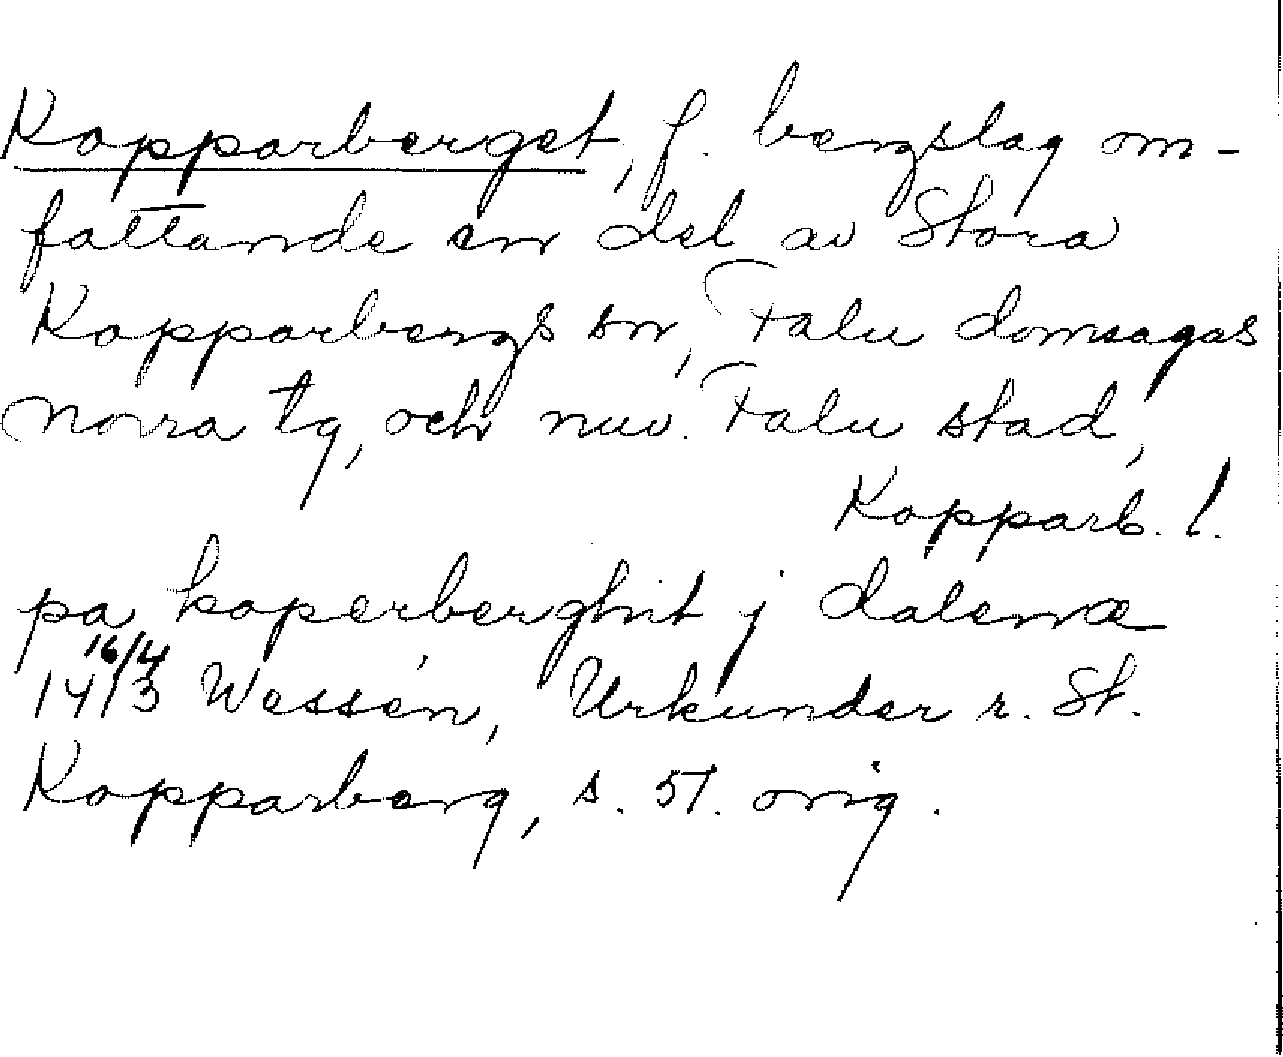 Kopparberget, f. bergslag om-
fattande en del av Stora
Kopparbergs sn, Falu domsagas
norra tg, och nuv. Falu stad,
Kopparb. l.
pa koperberghit j dalenæ
16/4
1413 Wessén, Urkunder r. St.
Kopparberg, s. 51. orig.